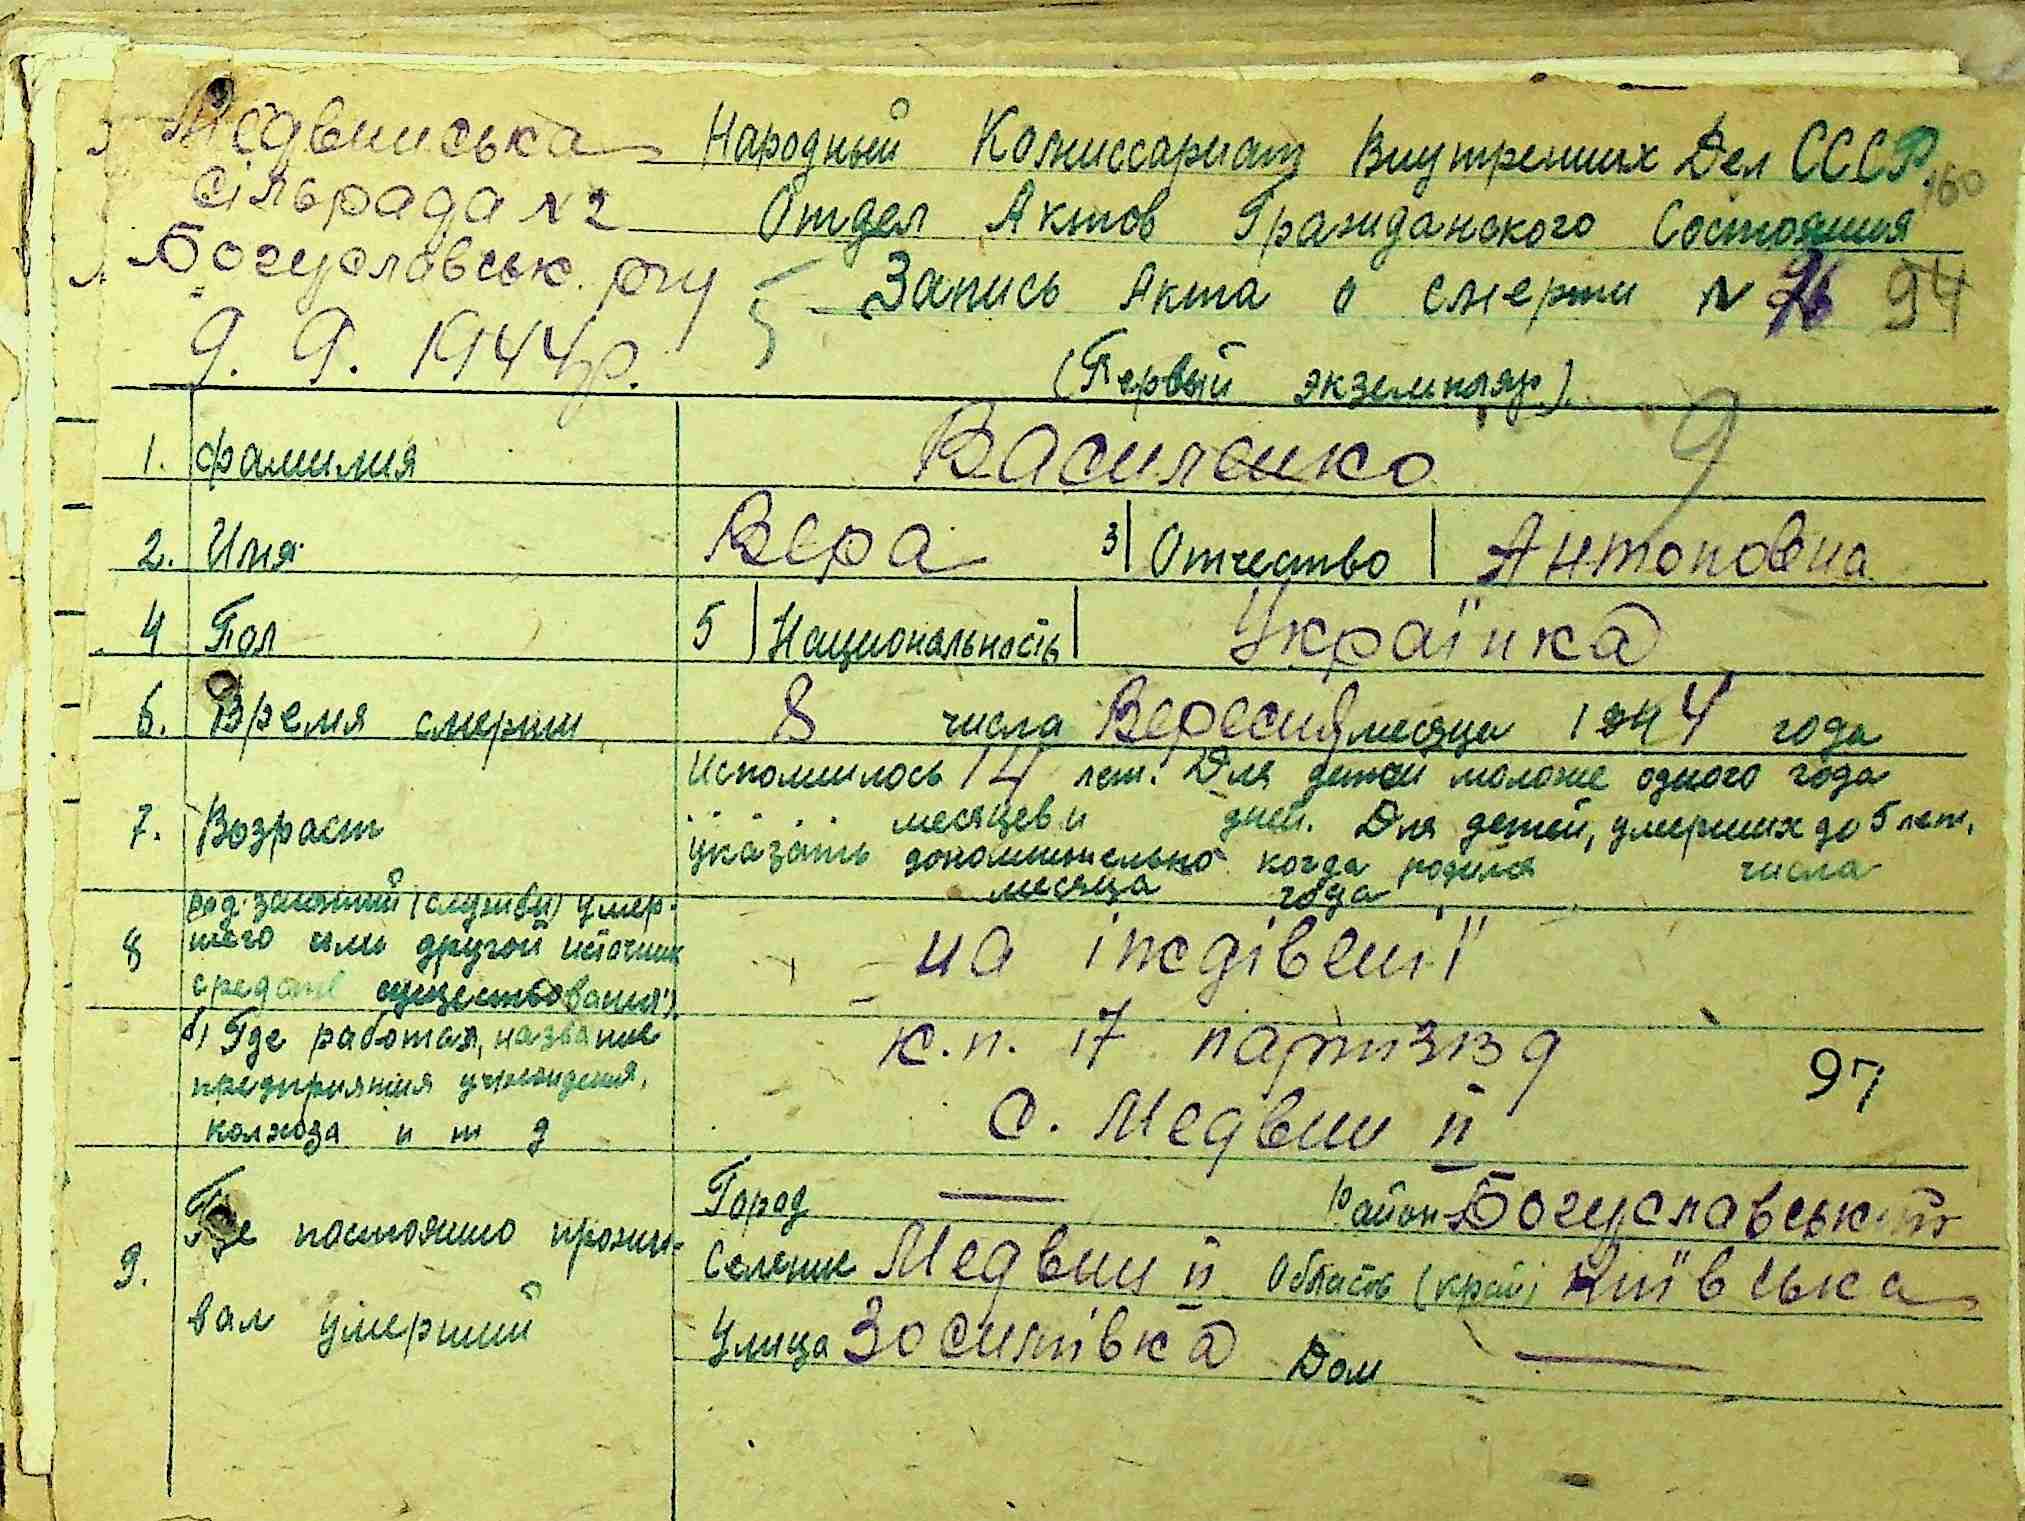 Медвинська
сільрада N2
Богуславськ. р-ну
9. 9. 1944 р.
Народный Комиссариат Внутренних Дел СССР
160
Отдел Актов Гражданского Состояния
5 Запись Акта о смерти N 94
(Первый экземпляр)
9
1. Фамилия Василенко
2. Имя Вера 3 Отчество Антоновна
4 Пол 5 Национальность Українка
6. Время смерти 8 числа Вересня месяца 1944 года
7. Возраст Исполнилось 14 лет. Для детей моложе одного года
месяцев и дней. Для детей, умерших до 5 лет,
указать дополнительно когда родился числа
месяца года
8 род занятий (службы) умер-
шего или другой источник
средств существования). на іждівенії
б) Где работал, название
предприятия учреждения,
колхоза и т д
к.п. 17 партзїзд
с. Медвин ІІ
97
9. Где постоянно прожи-
вал умерший
Город — Район Богуславський
Селение Медвин ІІ Область (край) Київська
Улица Зосимівка Дом —